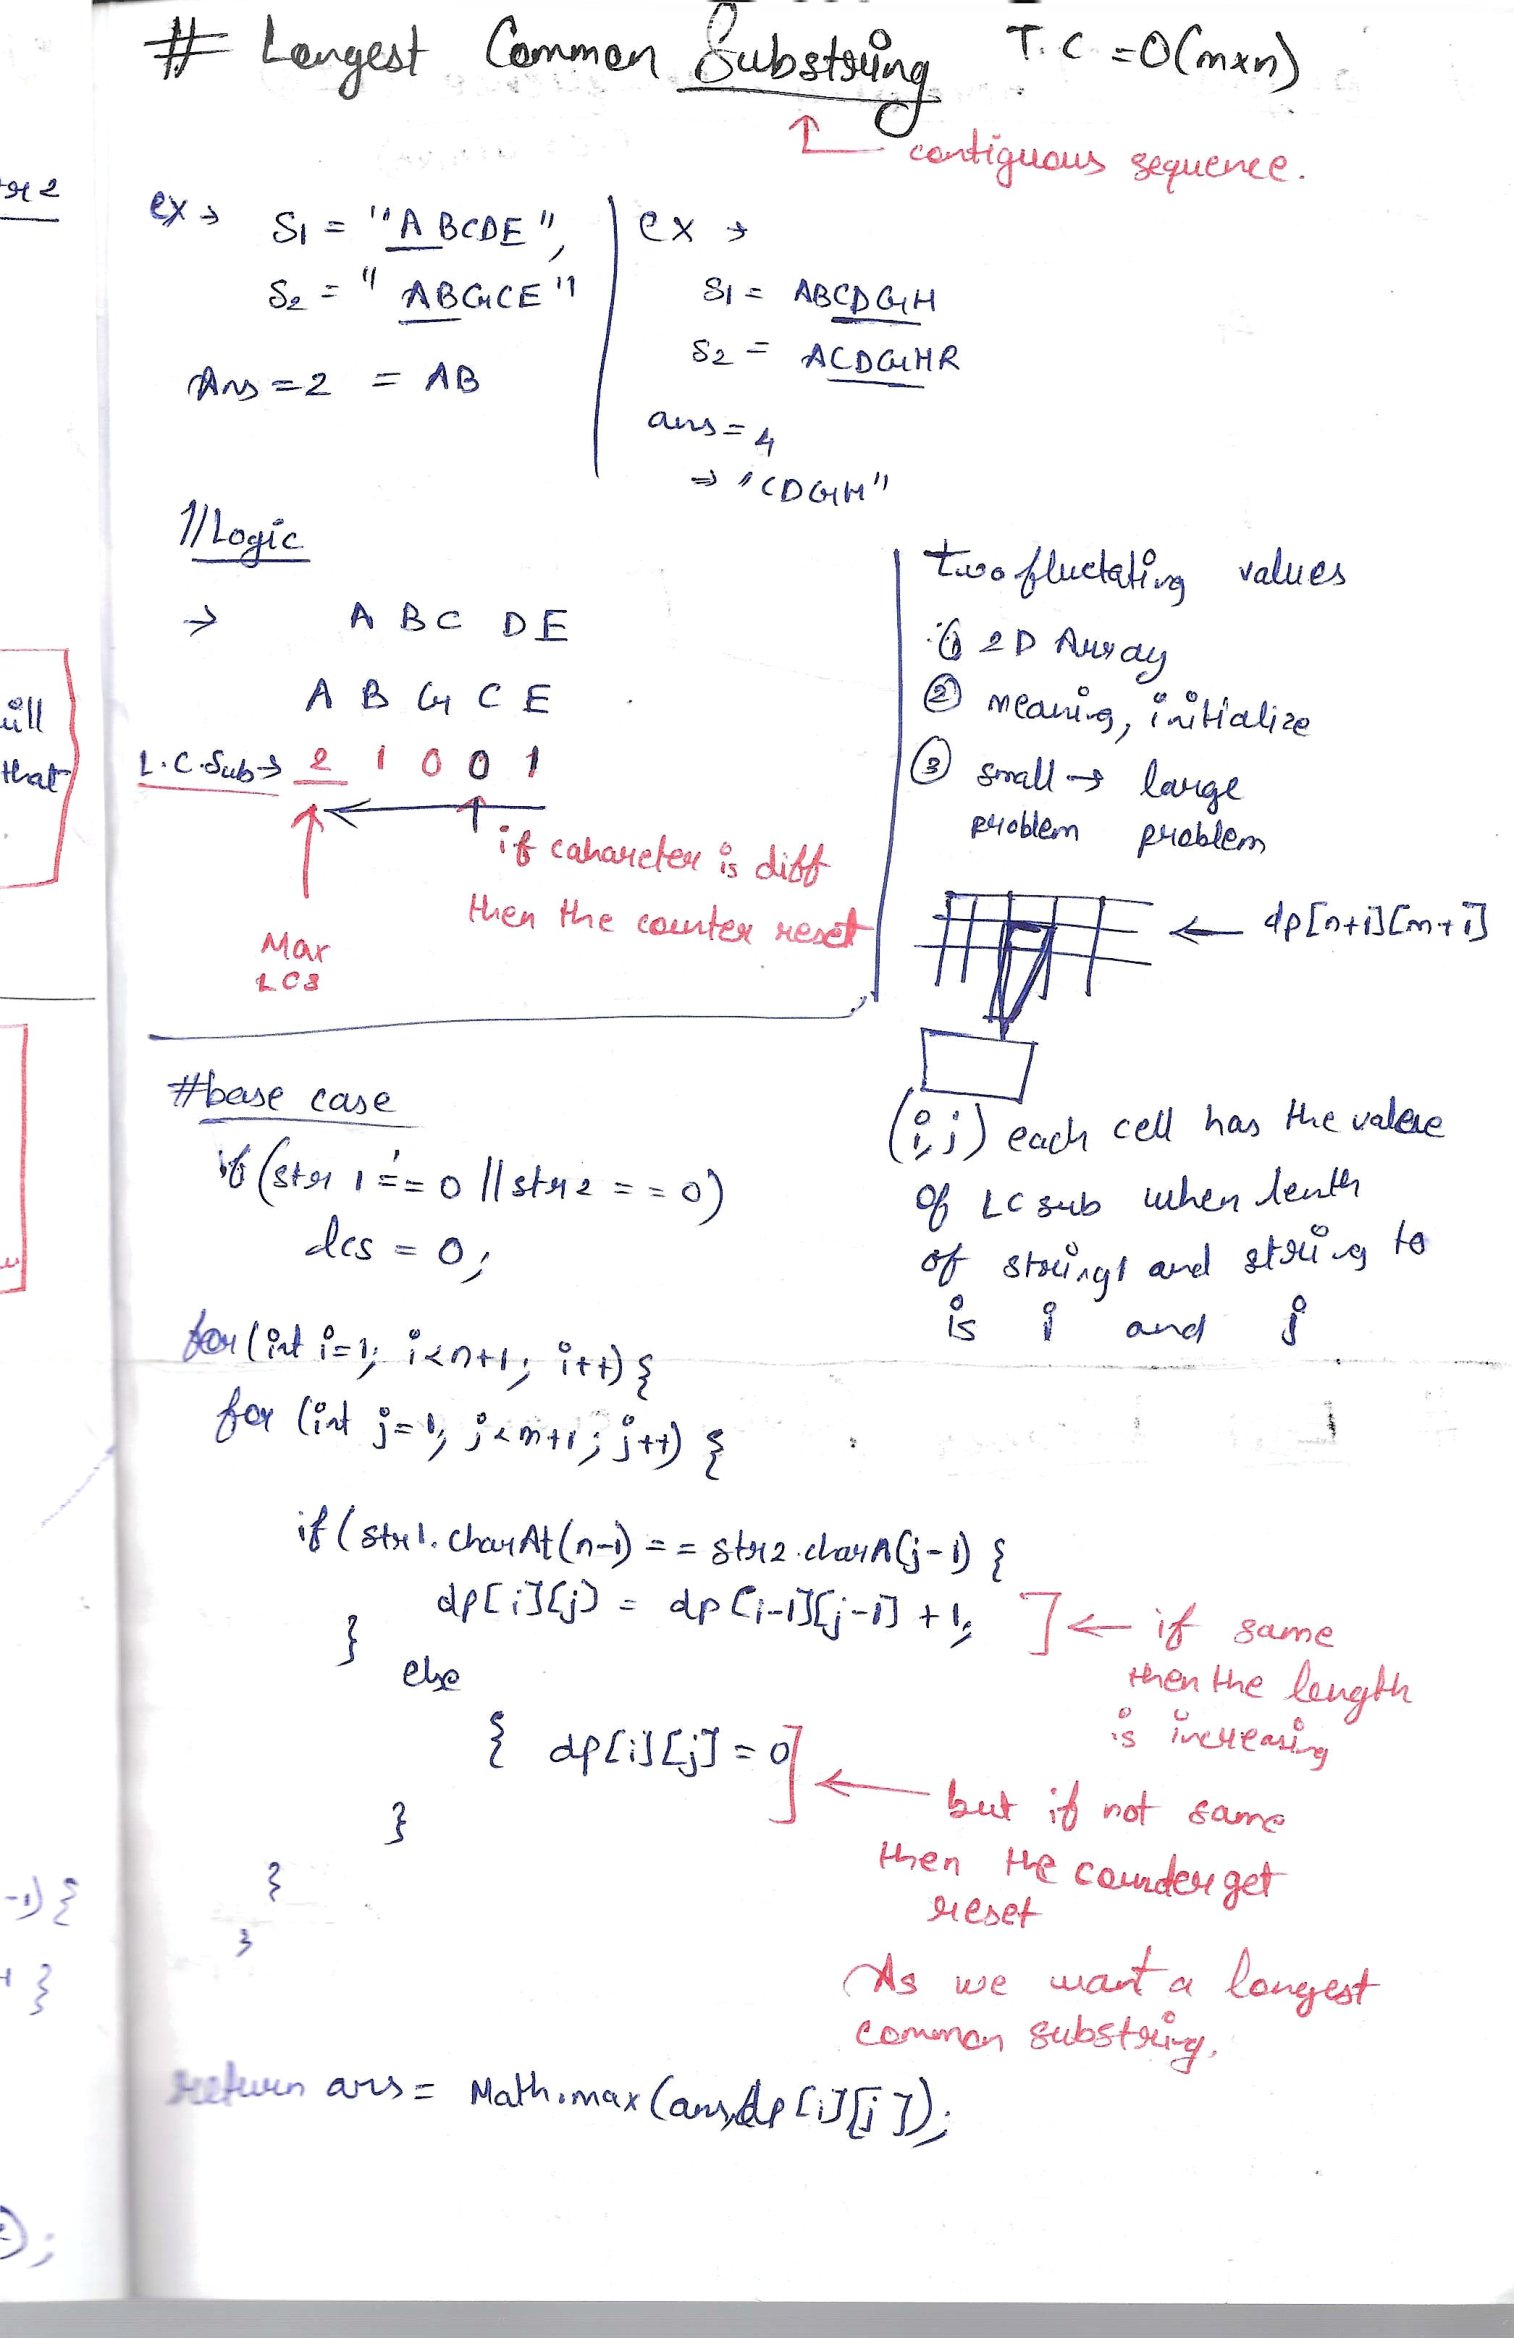 # Longest Common Substring T.C = O(m×n)
contiguous sequence.
tr 2
ex → S1 = "ABCDE",
S2 = "ABGCE"
Ans = 2 = AB
ex →
S1 = ABCDGH
S2 = ACDGHR
ans = 4
⇒ "CDGH"
//Logic
→ A B C D E
A B G C E
L.C.Sub → 2 1 0 0 1
if caharcter is diff
then the counter reset
Max
LCS
two fluctating values
① 2D Array
② meaning, initialize
③ small → large
problem problem
← dp[n+1][m+1]
(i,j) each cell has the value
of LC sub when lenth
of string1 and string to
is i and j
ill
that
#base case
if (str 1 == 0 || str 2 == 0)
lcs = 0;
for (int i=1; i<n+1; i++) {
for (int j=1; j<m+1; j++) {
if (str1.charAt(n-1) == str2.charA(j-1) {
dp[i][j] = dp[i-1][j-1] +1;
} else
{ dp[i][j] = 0
}
}
}
← if same
then the length
is increasing
← but if not same
then the counder get
reset
As we want a longest
common substring.
-1) {
+ }
return ans = Math.max(ans,dp[i][j]);
);